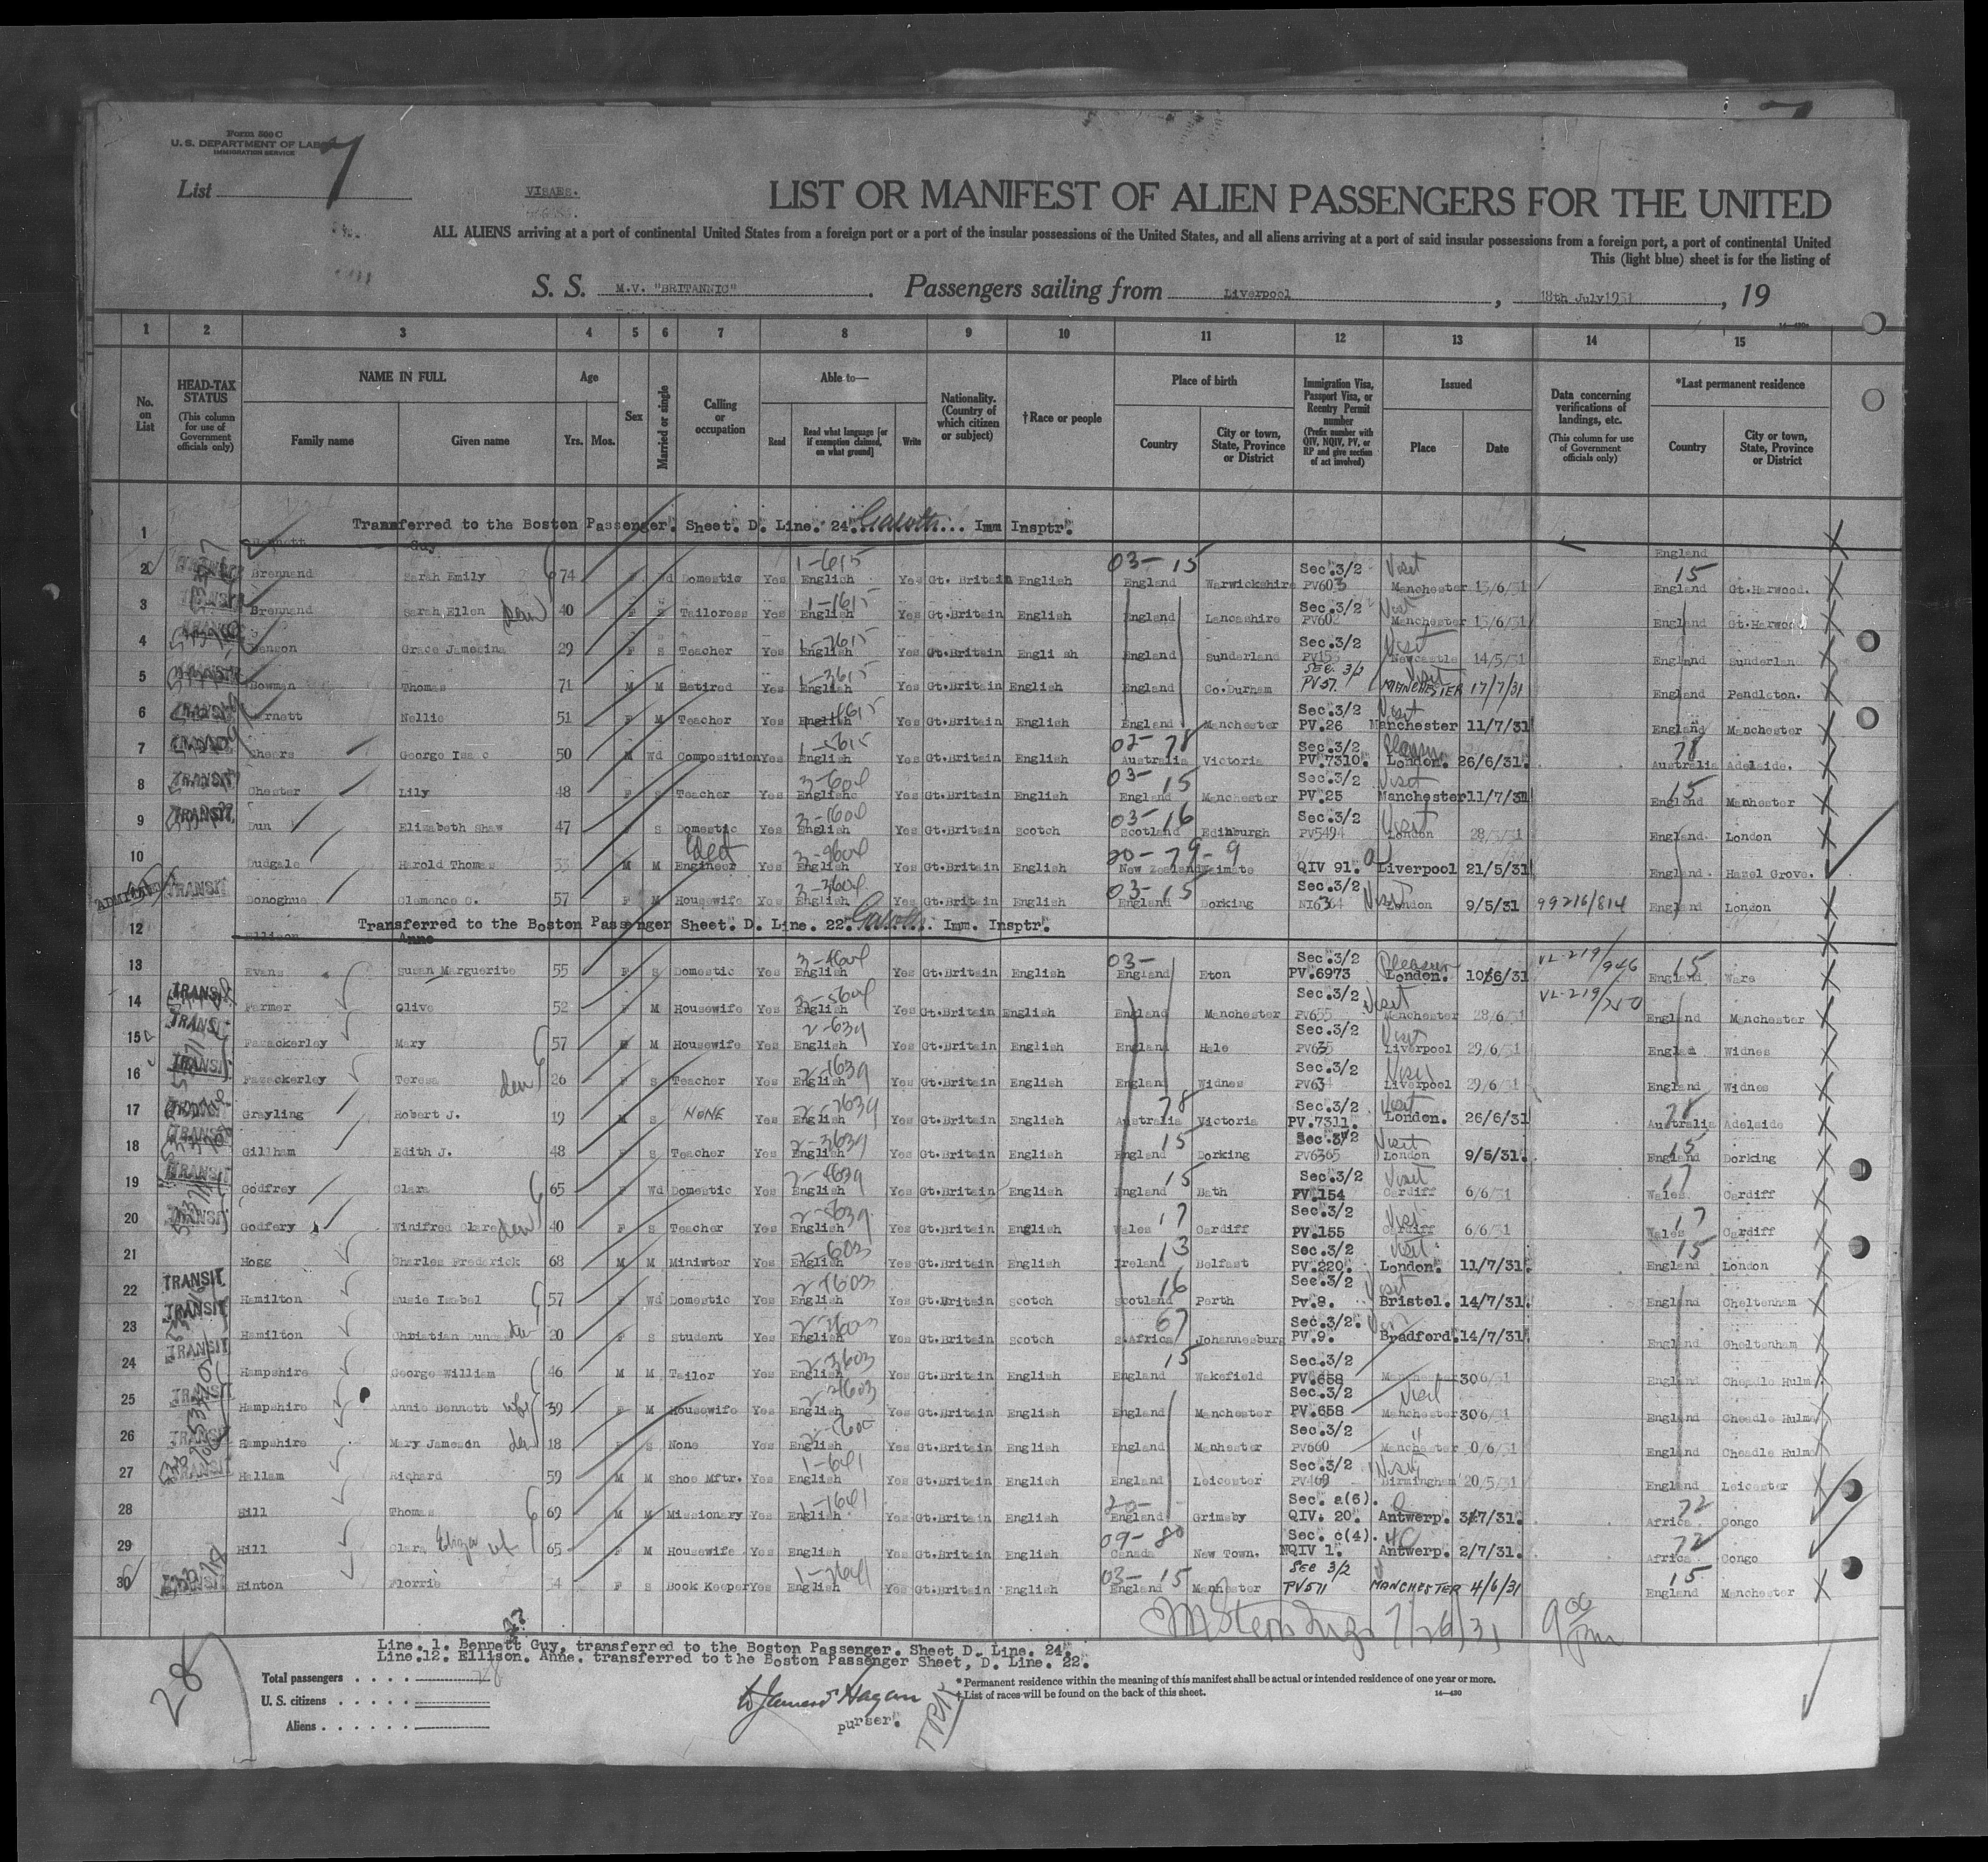 Form 500 C
U. S. DEPARTMENT OF LABOR
IMMIGRATION SERVICE
List 7
VISAES.
LIST OR MANIFEST OF ALIEN PASSENGERS FOR THE UNITED
ALL ALIENS arriving at a port of continental United States from a foreign port or a port of the insular possessions of the United States, and all aliens arriving at a port of said insular possessions from a foreign port, a port of continental United
This (light blue) sheet is for the listing of
S. S. M.V. "BRITANNIC". Passengers sailing from Liverpool, 18th July 1931, 19
14—430
1 2 3 4 5 6 7 8 9 10 11 12 13 14 15
No. on List
HEAD-TAX STATUS (This column for use of Government officials only)
NAME IN FULL Family name Given name
Age Yrs. Mos.
Sex
Married or single
Calling or occupation
Able to— Read Read what language [or if exemption claimed, on what ground] Write
Nationality. (Country of which citizen or subject)
†Race or people
Place of birth Country City or town, State, Province or District
Immigration Visa, Passport Visa, or Reentry Permit number (Prefix number with QIV, NQIV, PV, or RP and give section of act involved)
Issued Place Date
Data concerning verifications of landings, etc. (This column for use of Government officials only)
*Last permanent residence Country City or town, State, Province or District
1 Transferred to the Boston Passenger. Sheet. D. Line. 24. Imm Insptr.
Bennett Guy England
2 TRANSIT Brennand Sarah Emily 74 F Wd Domestic Yes 1-615 English Yes Gt. Britain English 03-15 England Warwickshire Sec.3/2 PV603 Visit Manchester 13/6/31 15 England Gt.Harwood.
3 Brennand Sarah Ellen 40 F S Tailoress Yes 1-1615 English Yes Gt.Britain English England Lancashire Sec.3/2 PV602 Visit Manchester 13/6/31 England Gt.Harwood
4 Benson Grace Jamesina 29 F S Teacher Yes 1-2615 English Yes Gt.Britain English England Sunderland Sec.3/2 PV155 Visit Newcastle 14/5/31 England Sunderland
5 Bowman Thomas 71 M M Retired Yes 1-3615 English Yes Gt.Britain English England Co.Durham SEC. 3/2 PV57. Visit MANCHESTER 17/7/31 England Pendleton.
6 TRANSIT Nellie 51 F M Teacher Yes 1-4615 English Yes Gt.Britain English England Manchester Sec.3/2 PV.26 Visit Manchester 11/7/31 England Manchester
7 George Isaac 50 M Wd Composition Yes 1-5615 English Yes Gt.Britain English 02-78 Australia Victoria Sec.3/2 PV.7310. London. 26/6/31. 78 Australia Adelaide.
8 TRANSIT Chester Lily 48 F S Teacher Yes 3-604 English Yes Gt.Britain English 03-15 England Manchester Sec.3/2 PV.25 Visit Manchester 11/7/31 15 England Manhester
9 TRANSIT. Dun Elizabeth Shaw 47 F S Domestic Yes 3-1604 English Yes Gt.Britain Scotch 03-16 Scotland Edinburgh Sec.3/2 PV5494 Visit London England. London
10 Dudgale Harold Thomas 33 M M Engineer Yes 3-2604 English Yes Gt.Britain English 20-79-9 New Zealand Waimate QIV 91. Liverpool 21/5/31 England. Hazel Grove.
ADMITTED TRANSIT Donoghue Clemence C. 57 F M Housewife Yes 3-3604 English Yes Gt.Britain English 03-15 England Dorking Sec.3/2 Visit London 9/5/31 99216/814 England London
12 Transferred to the Boston Passenger Sheet. D. Line. 22. Imm. Insptr.
Ellison Anne
13 Evans Susan Marguerite 55 F S Domestic Yes 3-4604 English Yes Gt.Britain English 03- England Eton Sec.3/2 PV.6973 Pleasure London. 10/6/31 VL-219/946 15 England Ware
14 TRANSIT Farmer Olive 52 F M Housewife Yes 3-5604 English Yes Gt.Britain English England Manchester Sec.3/2 PV655 Visit Manchester 28/6/31 VL-219/250 England Manchester
15 TRANSIT Fazackerley Mary 57 F M Housewife Yes 2-639 English Yes Gt.Britain English England Hale Sec.3/2 PV635 Visit Liverpool 29/6/31 Englan Widnes
16 TRANSIT Fazackerley Teresa 26 F S Teacher Yes 2-1639 English Yes Gt.Britain English England Widnes Sec.3/2 PV634 Visit Liverpool 29/6/31 England Widnes
17 Grayling Robert J. 19 M S NONE Yes 2-2639 English Yes Gt.Britain English 78 Australia Victoria Sec.3/2. PV.7311. Visit London. 26/6/31 78 Australia Adelaide
18 TRANSIT Gillham Edith J. 48 F S Teacher Yes 2-3639 English Yes Gt.Britain English 15 England Dorking Sec.3/2 PV6365 Visit London 9/5/31. 15 England Dorking
19 TRANSIT Godfrey Clara 65 F Wd Domestic Yes 2-4639 English Yes Gt.Britain English 15 England Bath Sec.3/2 PV.154 Visit Cardiff 6/6/31 17 Wales. Cardiff
20 TRANSIT Godfery Winifred Clare 40 F S Teacher Yes 2-5639 English Yes Gt.Britain English 17 Wales Cardiff Sec.3/2 PV.155 Visit Cardiff 6/6/31 17 Wales Cardiff
21 Hogg Charles Frederick 68 M M Miniwter Yes 2-603 English Yes Gt.Britain English 13 Ireland Belfast Sec.3/2 PV.220. Visit London. 11/7/31. 15 England London
22 TRANSIT Hamilton Susie Isabel 57 F Wd Domestic Yes 2-1603 English Yes Gt.Britain Scotch 16 Scotland Perth Sec.3/2 Pv.8. Visit Bristel. 14/7/31. England Cheltenham
23 TRANSIT Hamilton Christian Dundas 20 F S Student Yes 2-2603 English Yes Gt.Britain Scotch 67 S.Africa Johannesburg Sec.3/2. PV.9. Bradford. 14/7/31. England Cheltenham
24 TRANSIT Hampshire George William 46 M M Tailor Yes 2-3603 English Yes Gt.Britain English 15 England Wakefield Sec.3/2 PV.658 Manchester 30/6/31 England Cheadle Hulm
25 TRANSIT Hampshire Annie Bennett wife 39 F M Housewife Yes 2-4603 English Yes Gt.Britain English England Manchester Sec.3/2 PV.658 Visit Manchester 30/6/31 England Cheadle Hulme
26 TRANSIT Hampshire Mary Jameson 18 F S None Yes English Yes Gt.Britain English England Manhester Sec.3/2 PV660 " Manchester 30/6/31 England Cheadle Hulme
27 TRANSIT Hallam Richard 59 M M Shoe Mftr. Yes 1-641 English Yes Gt.Britain English England Leicester Sec.3/2 Visit Birmingham 20/5/31 England Leicester
28 Hill Thomas 69 M M Missionary Yes 1-1641 English Yes Gt.Britain English 20- England Grimsby Sec. a(6). QIV. 20. Antwerp. 3/7/31. 72 Africa. Congo
29 Hill Clara Eliza 65 F M Housewife Yes English Yes Gt.Britain English 09-80 Canada New Town. Sec. c(4). NQIV 1. Antwerp. 2/7/31. 72 Africa. Congo
30 Hinton Florrie F S Book Keeper Yes 1-2641 English Yes Gt.Britain English 03-15 England Manchester SEC 3/2 PV571 MANCHESTER 4/6/31 15 England Manchester
7/26/31 9 00 pm
Line. 1. Bennett Guy, transferred to the Boston Passenger. Sheet D. Line. 24.
Line.12. Ellison. Anne. transferred to the Boston Passenger Sheet, D. Line. 22.
28
Total passengers . . . .
U. S. citizens . . . . .
Aliens . . . . . .
purser.
* Permanent residence within the meaning of this manifest shall be actual or intended residence of one year or more.
† List of races will be found on the back of this sheet.
14—430